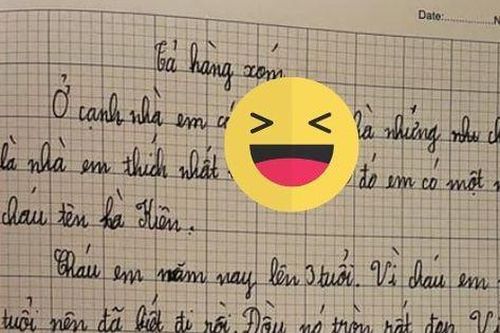 Date: N
Tả hàng xóm
Ở cạnh nhà em có là nhưng nhu
là nhà em thích nhất đó em có một
cháu tên hà Kiên.
Cháu em năm nay lên 3 tuổi. Vì cháu em
tuổi nên đã biết đi rồi. Đầu nó tròn rất